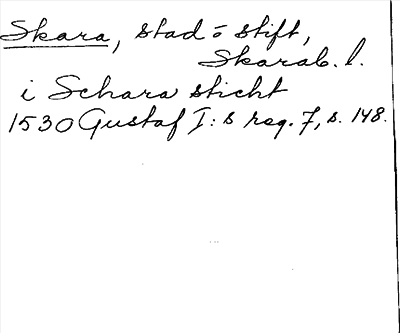 Skara, stad o stift,
Skarab. l.
i Schara sticht
1530 Gustaf I: s reg. 7, s. 148.